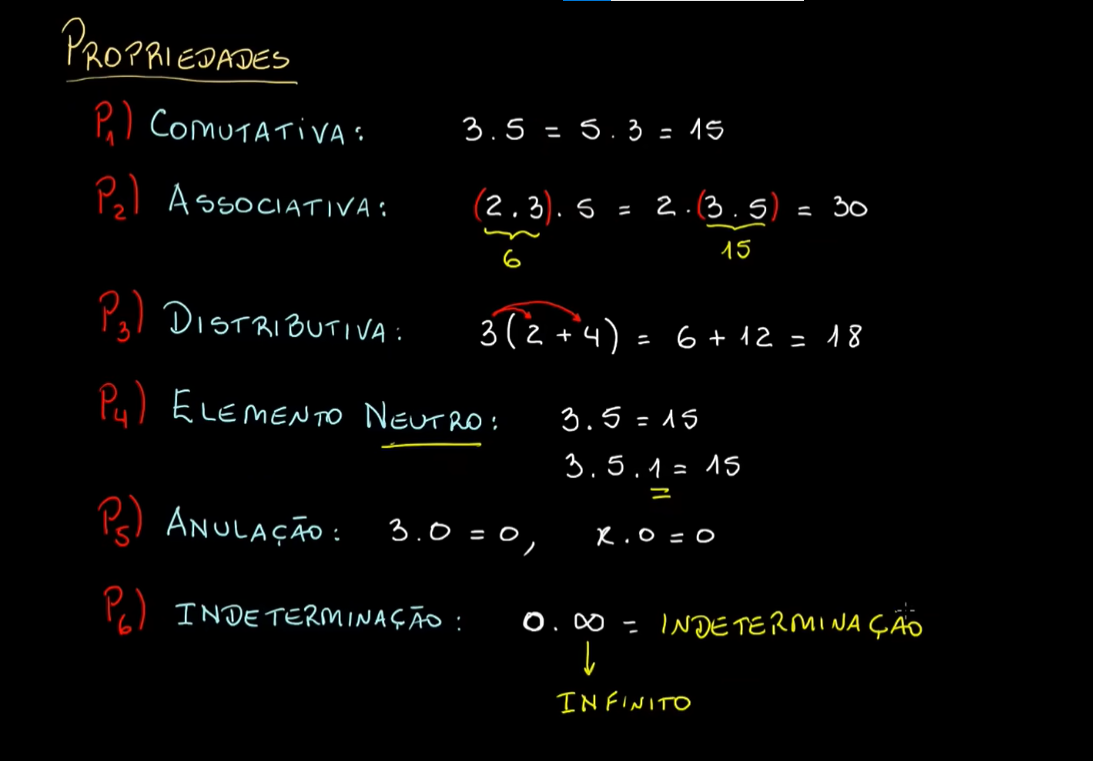 PROPRIEDADES
P1) COMUTATIVA: 3.5 = 5.3 = 15
P2) ASSOCIATIVA: (2.3).5 = 2.(3.5) = 30
6 15
P3) DISTRIBUTIVA: 3(2+4) = 6 + 12 = 18
P4) ELEMENTO NEUTRO: 3.5 = 15
3.5.1 = 15
P5) ANULAÇÃO: 3.0 = 0, x.0 = 0
P6) INDETERMINAÇÃO: 0.∞ = INDETERMINAÇÃO
INFINITO